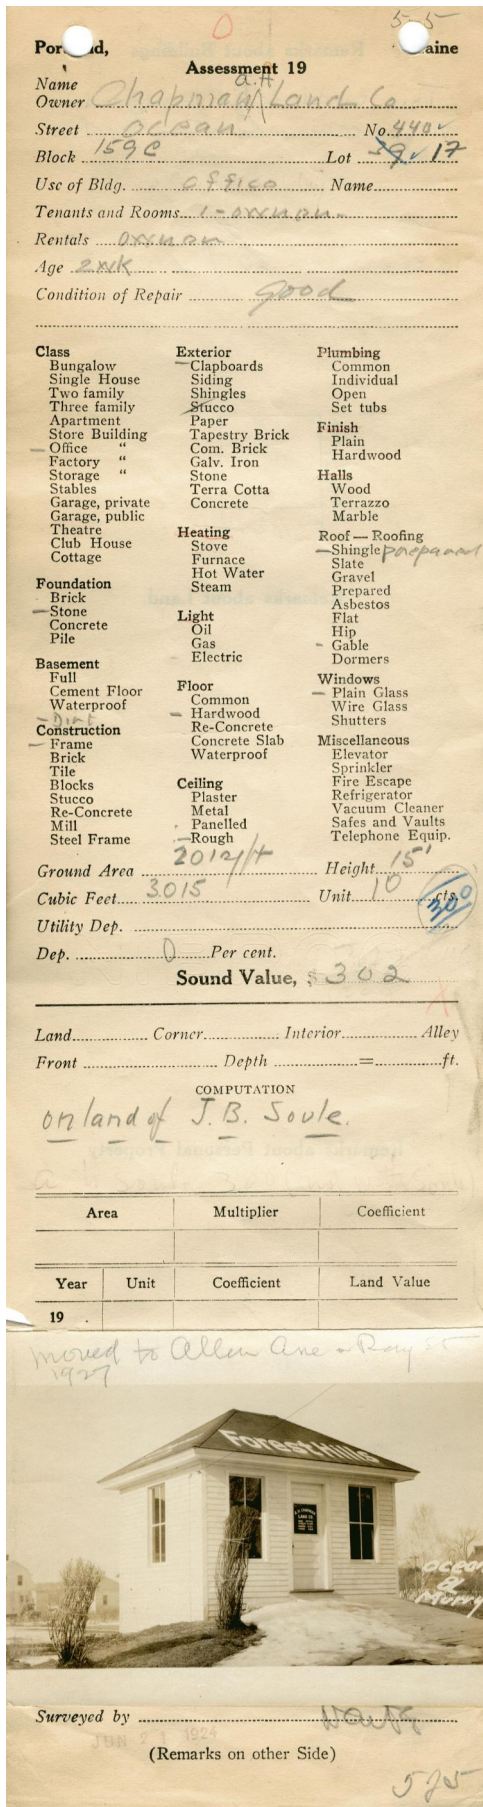 5-5
Portland, Maine
Assessment 19
Name
A.H.
Owner Chapman Land Co
Street Ocean No. 440
Block 159C Lot 39 17
Use of Bldg. office Name
Tenants and Rooms 1-owner
Rentals owner
Age 2wk
Condition of Repair Good
Class
Bungalow
Single House
Two family
Three family
Apartment
Store Building
Office "
Factory "
Storage "
Stables
Garage, private
Garage, public
Theatre
Club House
Cottage
Foundation
Brick
Stone
Concrete
Pile
Basement
Full
Cement Floor
Waterproof
Dirt
Construction
Frame
Brick
Tile
Blocks
Stucco
Re-Concrete
Mill
Steel Frame
Exterior
Clapboards
Siding
Shingles
Stucco
Paper
Tapestry Brick
Com. Brick
Galv. Iron
Stone
Terra Cotta
Concrete
Heating
Stove
Furnace
Hot Water
Steam
Light
Oil
Gas
Electric
Floor
Common
Hardwood
Re-Concrete
Concrete Slab
Waterproof
Ceiling
Plaster
Metal
Panelled
Rough
Plumbing
Common
Individual
Open
Set tubs
Finish
Plain
Hardwood
Halls
Wood
Terrazzo
Marble
Roof — Roofing
Shingle prepared
Slate
Gravel
Prepared
Asbestos
Flat
Hip
Gable
Dormers
Windows
Plain Glass
Wire Glass
Shutters
Miscellaneous
Elevator
Sprinkler
Fire Escape
Refrigerator
Vacuum Cleaner
Safes and Vaults
Telephone Equip.
Ground Area 201 Height 15'
Cubic Feet 3015 Unit 10 cts.
300
Utility Dep.
Dep. 0 Per cent.
Sound Value, $ 302
Land Corner Interior Alley
Front Depth = ft.
COMPUTATION
on land of J.B. Soule.
Area Multiplier Coefficient
Year Unit Coefficient Land Value
19
moved to Allen Ave & Ray St
1927
Forest Hills
A.H. CHAPMAN
LAND CO
Ocean
&
Murry
Surveyed by
JUN 21 1924
(Remarks on other Side)
525